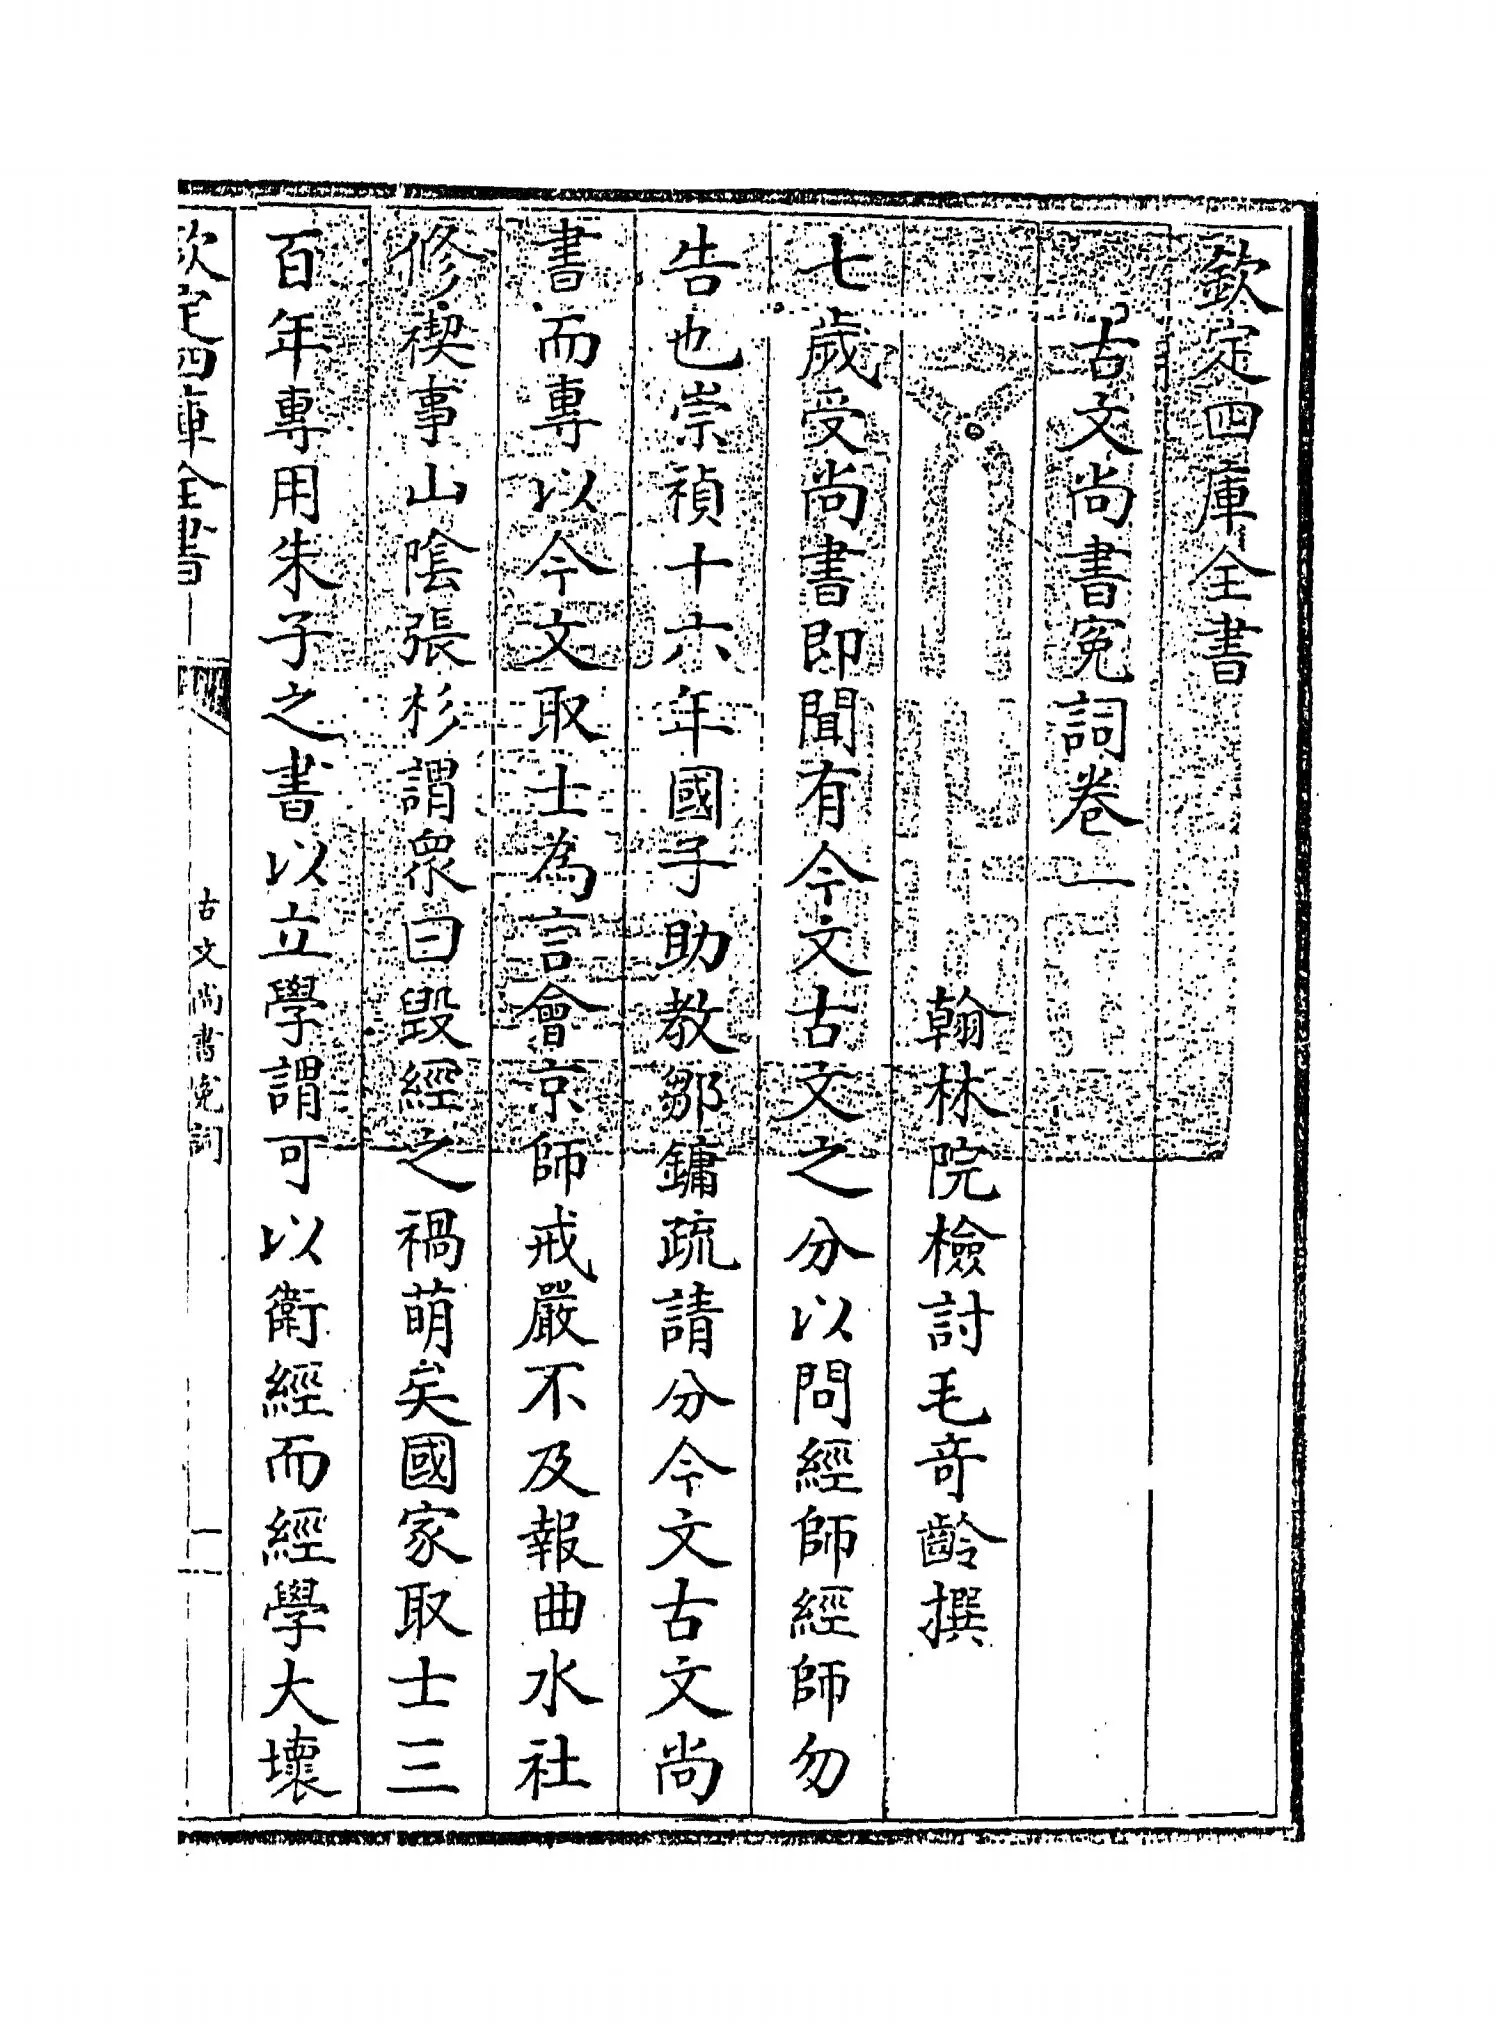 欽定四庫全書
古文尚書寃詞卷一
翰林院檢討毛奇齡撰
七歲受尚書即聞有今文古文之分以問經師經師勿
告也崇禎十六年國子助教鄒鏞疏請分今文古文尚
書而專以今文取士為言會京師戒嚴不及報曲水社
修禊事山陰張杉謂衆曰毀經之禍萌矣國家取士三
百年專用朱子之書以立學謂可以衛經而經學大壞
欽定四庫全書
古文尚書寃詞
一